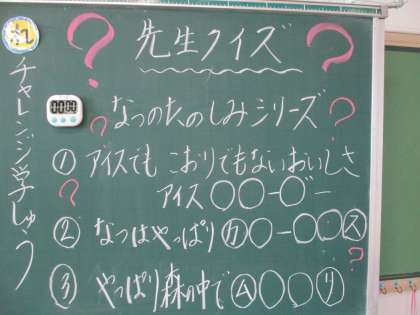 先生クイズ
チャレンジ学しゅう
00:00
なつのたのしみシリーズ
① アイスでも こおりでもないおいしさ
アイス〇〇ー〇゛ー
② なつはやっぱり カ〇ー〇〇ス
③ やっぱり森の中で ム〇〇リ